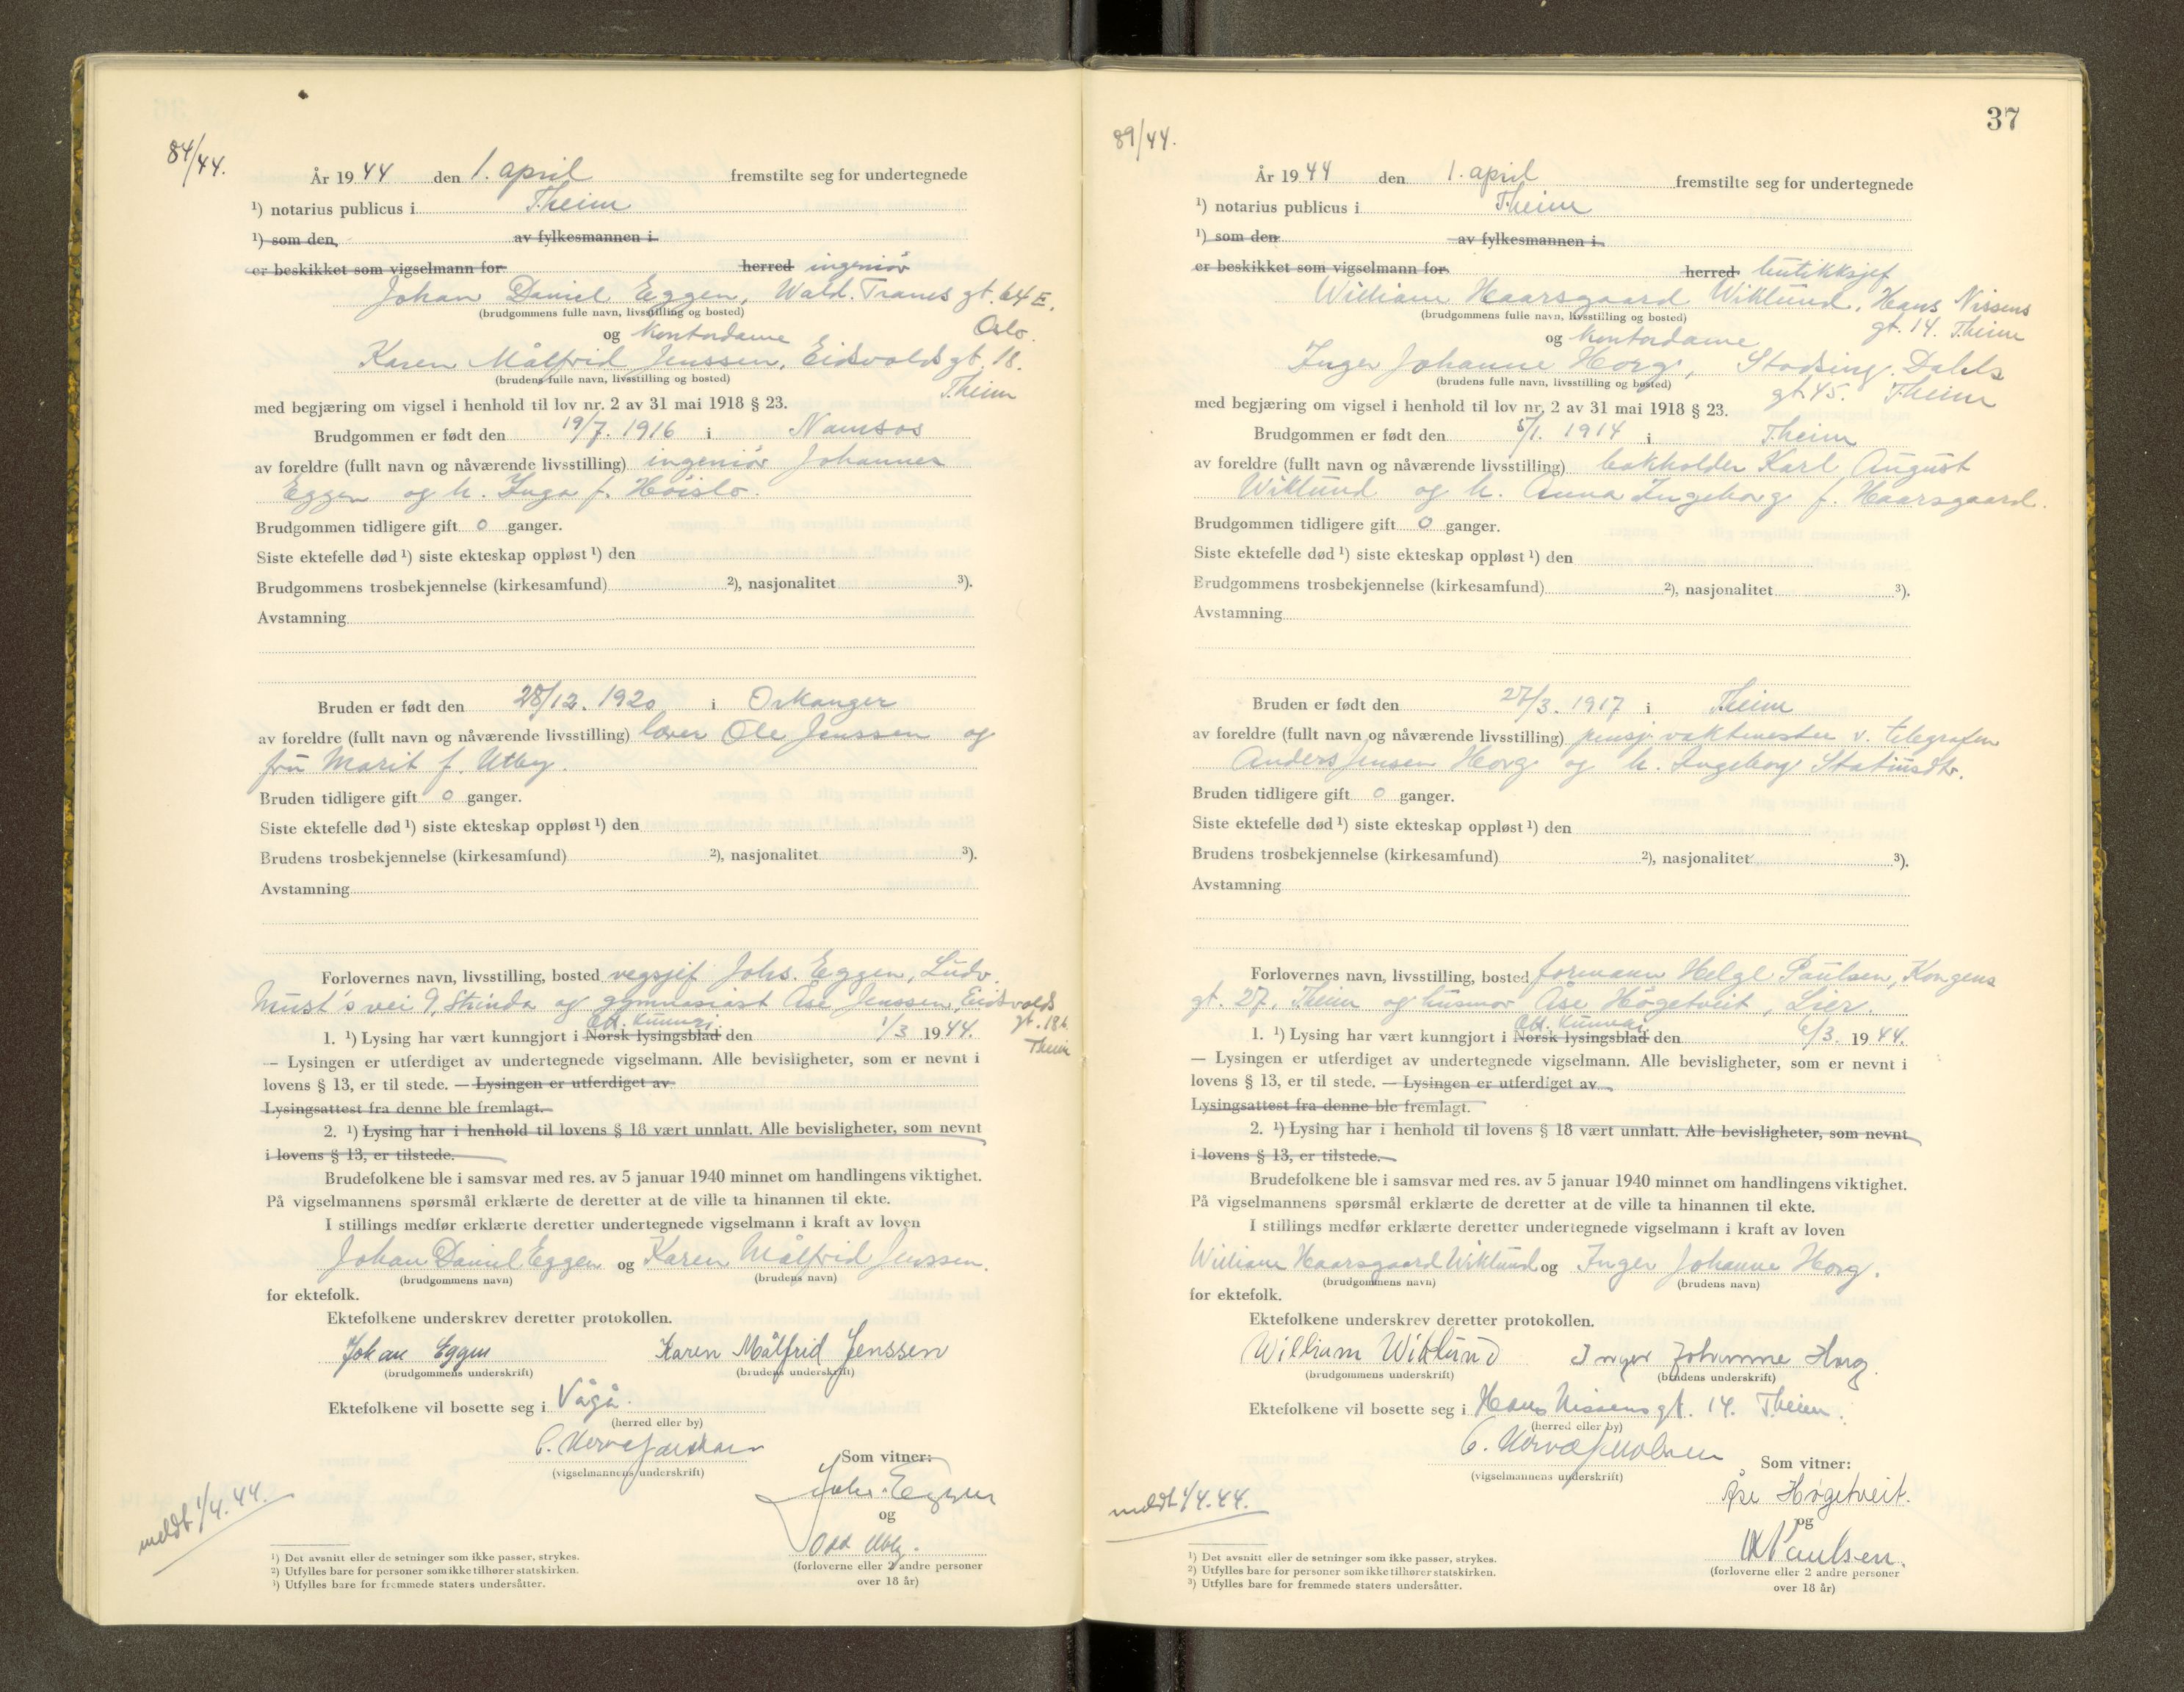 84/44.
År 1944 den 1. april fremstilte seg for undertegnede
¹) notarius publicus i Theim
¹) som den, av fylkesmannen i
er beskikket som vigselmann for herred ingeniør
Johan Daniel Eggen, Wald. Tranes gt. 64 E.
(brudgommens fulle navn, livsstilling og bosted)
Oslo
og kontordame
Karen Målfrid Jenssen, Eidsvolds gt. 18.
(brudens fulle navn, livsstilling og bosted)
Theim
med begjæring om vigsel i henhold til lov nr. 2 av 31 mai 1918 § 23.
Brudgommen er født den 19/7. 1916 i Namsos
av foreldre (fullt navn og nåværende livsstilling) ingeniør Johannes
Eggen og h. Inga f. Høislo.
Brudgommen tidligere gift 0 ganger.
Siste ektefelle død ¹) siste ekteskap oppløst ¹) den
Brudgommens trosbekjennelse (kirkesamfund) ²), nasjonalitet ³).
Avstamning
Bruden er født den 28/12. 1920 i Orkanger
av foreldre (fullt navn og nåværende livsstilling) lærer Ole Jenssen og
fru Marit f. Utby.
Bruden tidligere gift 0 ganger.
Siste ektefelle død ¹) siste ekteskap oppløst ¹) den
Brudens trosbekjennelse (kirkesamfund) ²), nasjonalitet ³).
Avstamning
Forlovernes navn, livsstilling, bosted vegsjef Johs. Eggen, Ludv.
Must's vei 9, Strinda og gymnasiast Åse Jenssen, Eidsvolds
gt. 18b
Theim
1. ¹) Lysing har vært kunngjort i Norsk lysingsblad den 1/3 1944.
— Lysingen er utferdiget av undertegnede vigselmann. Alle bevisligheter, som er nevnt i
lovens § 13, er til stede. — Lysingen er utferdiget av
Lysingsattest fra denne ble fremlagt.
2. ¹) Lysing har i henhold til lovens § 18 vært unnlatt. Alle bevisligheter, som nevnt
i lovens § 13, er tilstede.
Brudefolkene ble i samsvar med res. av 5 januar 1940 minnet om handlingens viktighet.
På vigselmannens spørsmål erklærte de deretter at de ville ta hinannen til ekte.
I stillings medfør erklærte deretter undertegnede vigselmann i kraft av loven
Johan Daniel Eggen og Karen Målfrid Jenssen.
(brudgommens navn) (brudens navn)
for ektefolk.
Ektefolkene underskrev deretter protokollen.
Johan Eggen Karen Målfrid Jenssen
(brudgommens underskrift) (brudens underskrift)
Ektefolkene vil bosette seg i Vågå.
(herred eller by)
(vigselmannens underskrift)
Som vitner:
Johs. Eggen
og
Odd Utby.
(forloverne eller 2 andre personer
over 18 år)
meldt 1/4. 44.
¹) Det avsnitt eller de setninger som ikke passer, strykes.
²) Utfylles bare for personer som ikke tilhører statskirken.
³) Utfylles bare for fremmede staters undersåtter.
37
89/44.
År 1944 den 1. april fremstilte seg for undertegnede
¹) notarius publicus i Theim
¹) som den av fylkesmannen i
er beskikket som vigselmann for herred butikksjef
William Haarsgaard Wiklund, Hans Nissens
(brudgommens fulle navn, livsstilling og bosted)
gt. 14. Theim
og kontordame
Inger Johanne Horg, Stadsing. Dahls
(brudens fulle navn, livsstilling og bosted)
gt. 45. Theim
med begjæring om vigsel i henhold til lov nr. 2 av 31 mai 1918 § 23.
Brudgommen er født den 5/1. 1914 i Theim
av foreldre (fullt navn og nåværende livsstilling) bokholder Karl August
Wiklund og h. Anna Ingeborg f. Haarsgaard.
Brudgommen tidligere gift 0 ganger.
Siste ektefelle død ¹) siste ekteskap oppløst ¹) den
Brudgommens trosbekjennelse (kirkesamfund) ²), nasjonalitet ³).
Avstamning
Bruden er født den 27/3. 1917 i Theim
av foreldre (fullt navn og nåværende livsstilling) pensj. vaktmester v. telegrafen
Anders Jensen Horg og h. Ingeborg
Bruden tidligere gift 0 ganger.
Siste ektefelle død ¹) siste ekteskap oppløst ¹) den
Brudens trosbekjennelse (kirkesamfund) ²), nasjonalitet ³).
Avstamning
Forlovernes navn, livsstilling, bosted formann Helge Paulsen, Kongens
gt. 27, Theim og husmor Åse Høgetveit, Lier.
1. ¹) Lysing har vært kunngjort i Norsk lysingsblad den 6/3. 1944.
— Lysingen er utferdiget av undertegnede vigselmann. Alle bevisligheter, som er nevnt i
lovens § 13, er til stede. — Lysingen er utferdiget av
Lysingsattest fra denne ble fremlagt.
2. ¹) Lysing har i henhold til lovens § 18 vært unnlatt. Alle bevisligheter, som nevnt
i lovens § 13, er tilstede.
Brudefolkene ble i samsvar med res. av 5 januar 1940 minnet om handlingens viktighet.
På vigselmannens spørsmål erklærte de deretter at de ville ta hinannen til ekte.
I stillings medfør erklærte deretter undertegnede vigselmann i kraft av loven
William Haarsgaard Wiklund og Inger Johanne Horg.
(brudgommens navn) (brudens navn)
for ektefolk.
Ektefolkene underskrev deretter protokollen.
William Wiklund Inger Johanne Horg
(brudgommens underskrift) (brudens underskrift)
Ektefolkene vil bosette seg i Hans Nissens gt. 14. Theim.
(herred eller by)
(vigselmannens underskrift)
Som vitner:
Åse Høgetveit.
og
Paulsen.
(forloverne eller 2 andre personer
over 18 år)
meldt 1/4. 44.
¹) Det avsnitt eller de setninger som ikke passer, strykes.
²) Utfylles bare for personer som ikke tilhører statskirken.
³) Utfylles bare for fremmede staters undersåtter.